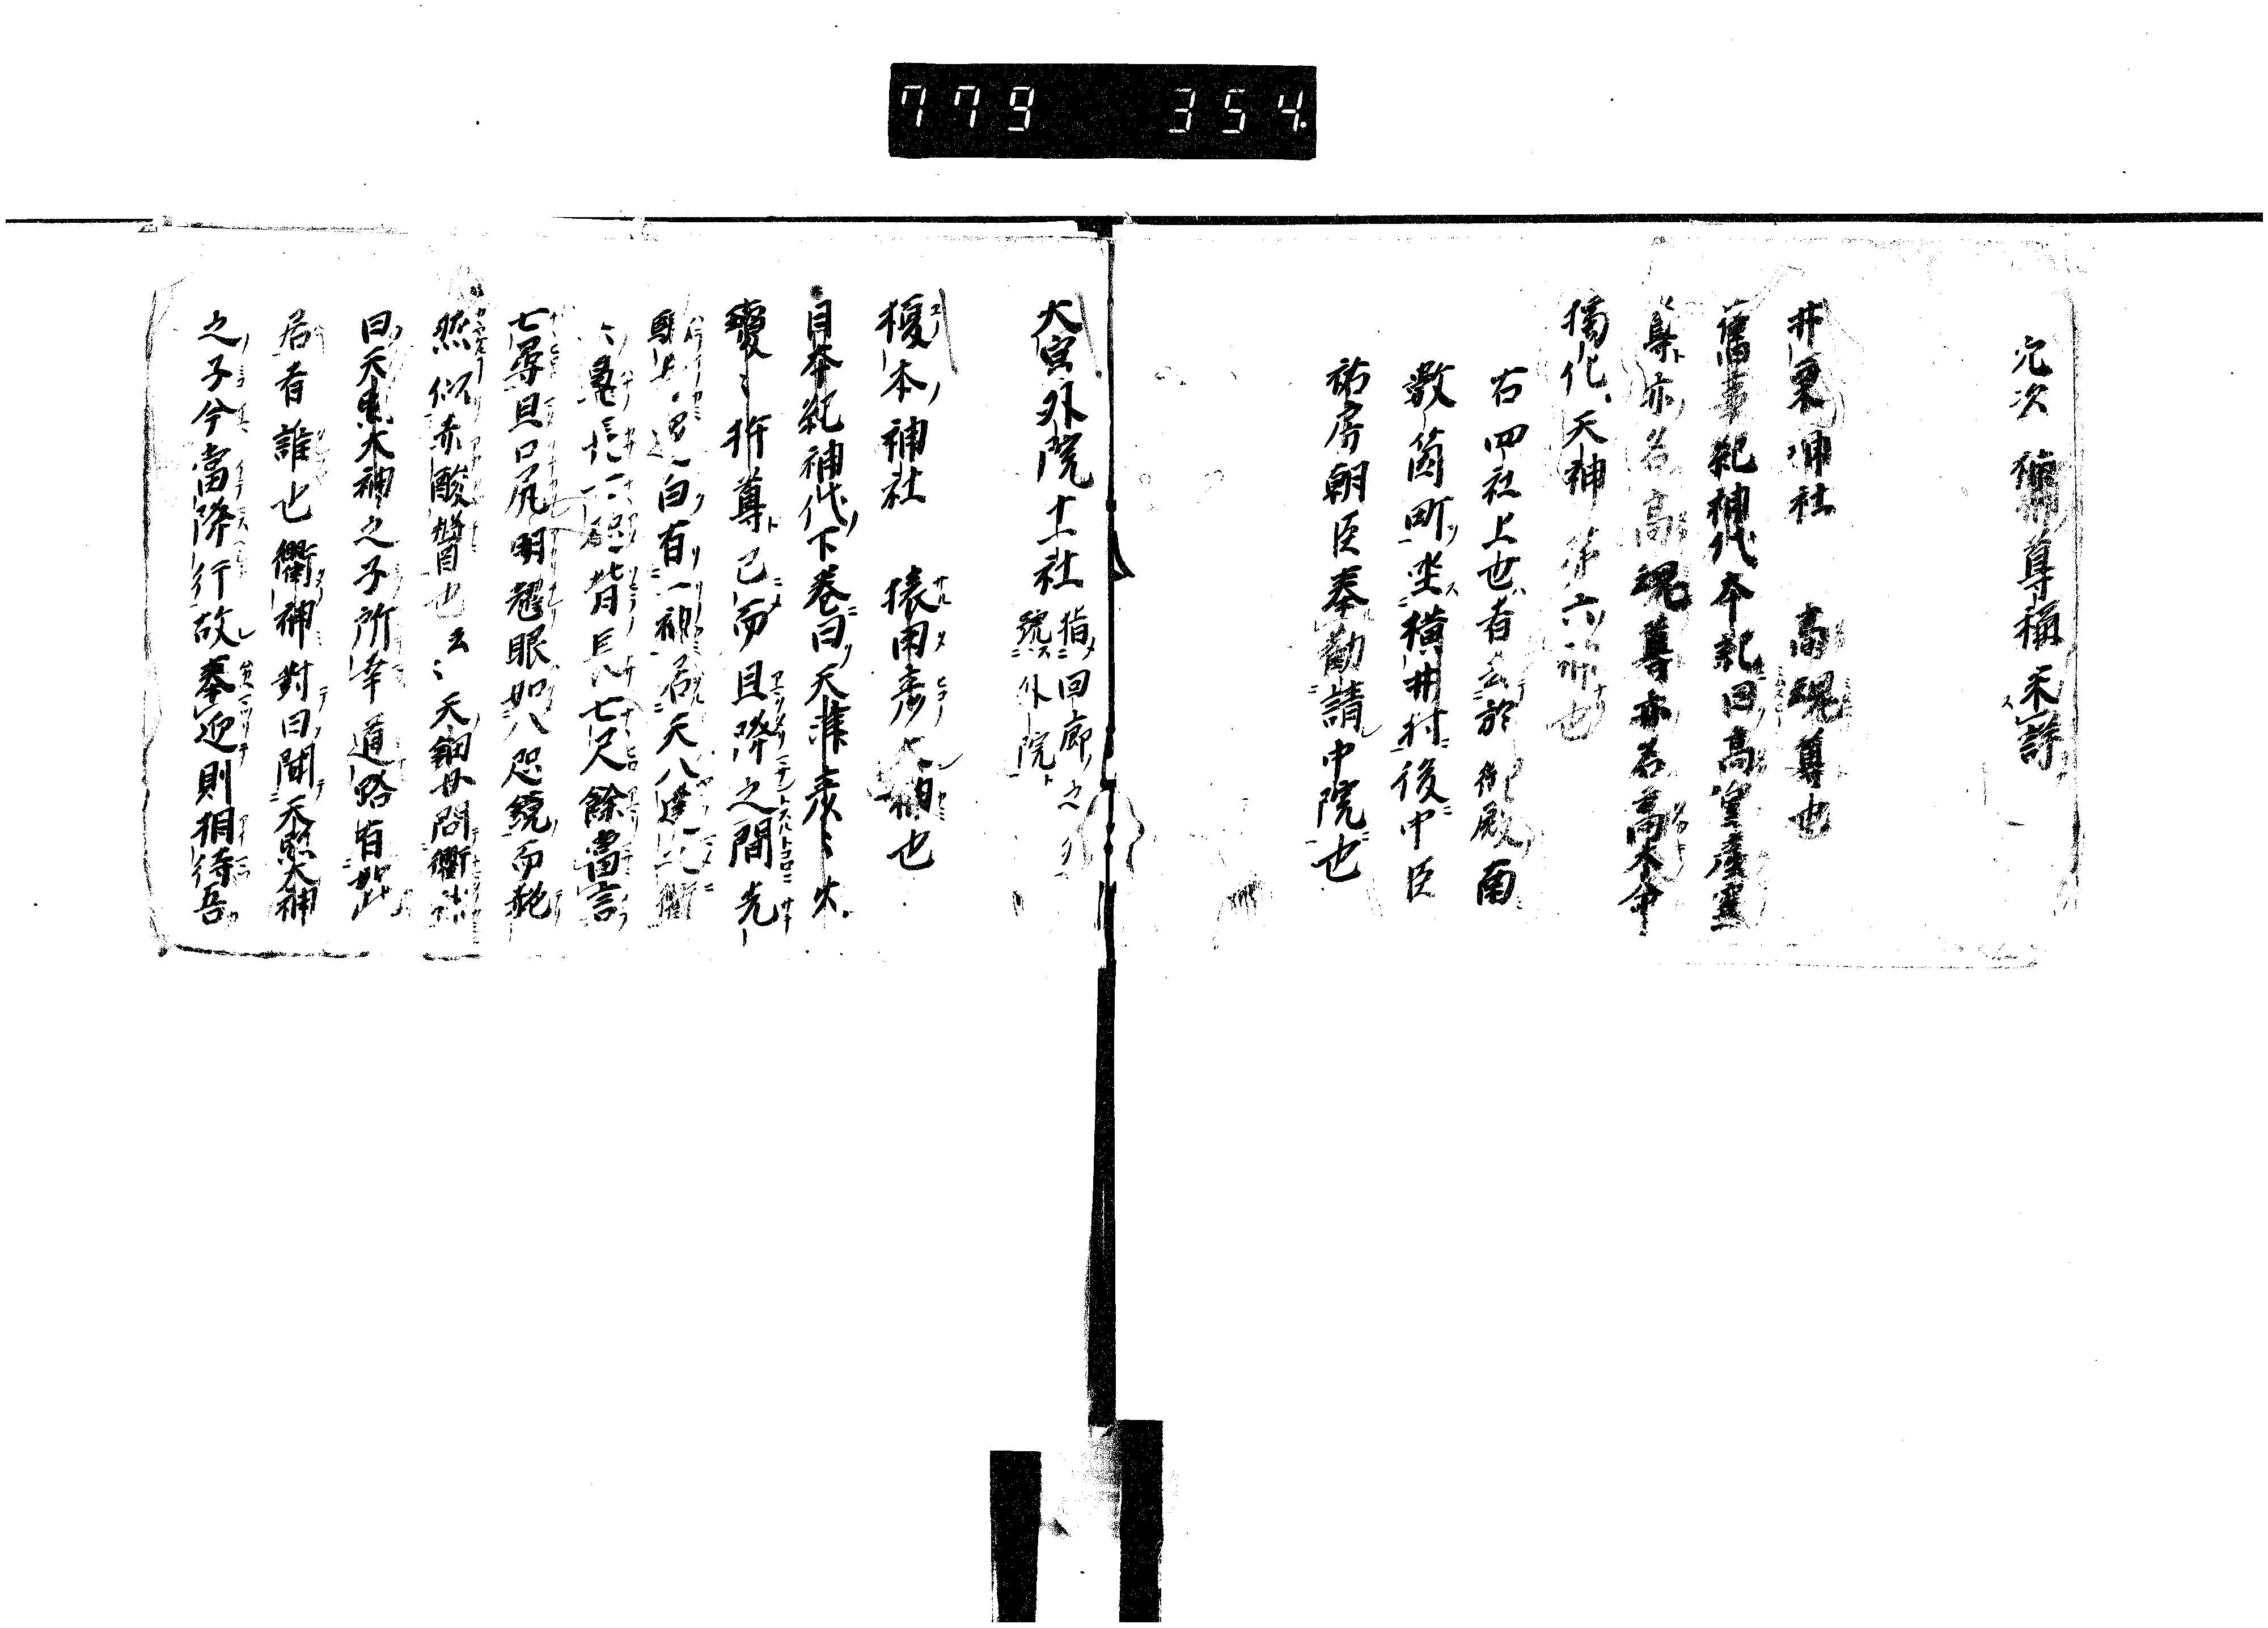 779 354
次 尊稱未詳
井栗神社 高魂尊也
舊事紀神代本記曰高皇産霊
尊亦名高魂尊亦名高木命
獨化天神第六神也
右四社上世者去於御殿南
敷箇町坐横井村後中臣
祐房朝臣奉勸請中院也
大宮外院十一社 指回廊之 號外院
榎本神社 猿田彦大神也
日本紀神代下巻曰天津彦々火
瓊々杵尊已而且降之間先
驅 還白有一神居天八達之衢
其鼻長 背長七尺餘當言
七尋且口尻明耀眼如八咫鏡而赩
然似赤酸醤也云々天鈿女問衢神
曰天照大神之子所幸道路有如此
居者誰也衢神對曰聞天照大神
之子今當降行故奉迎則相待吾